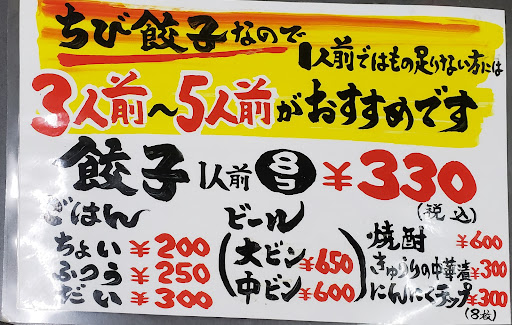 ちび餃子なので
1人前ではもの足りない方には
3人前〜5人前がおすすめです
餃子 1人前 8コ ¥330
(税込)
ごはん
ちょい ¥200
ふつう ¥250
だい ¥300
ビール
(大ビン ¥650
中ビン ¥600)
焼酎 ¥600
きゅうりの中華漬 ¥300
にんにくチップ ¥300
(8枚)